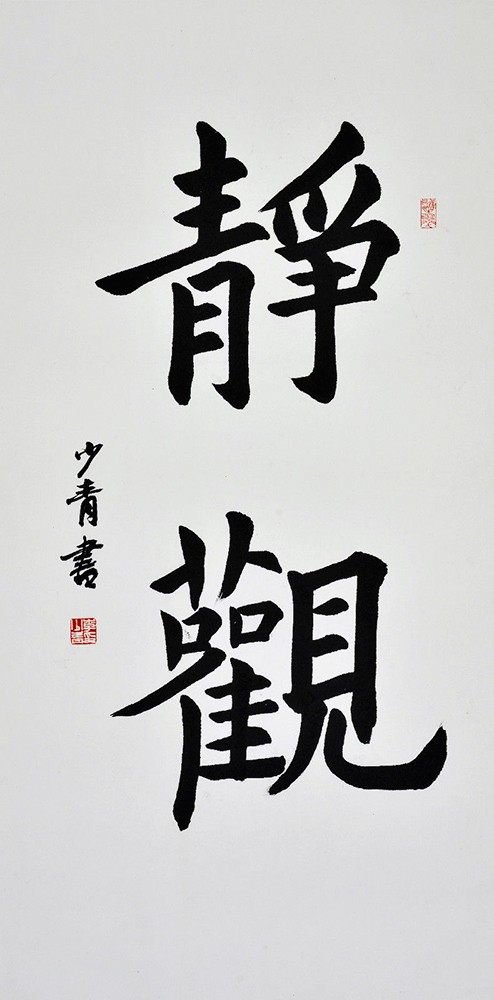 靜觀
少青書